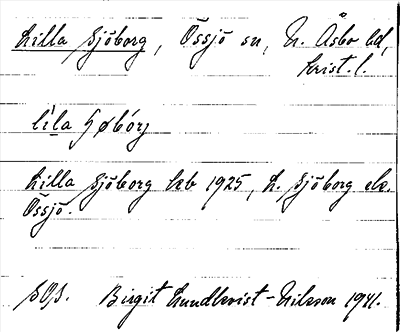 Lilla Sjöborg, Össjö sn, N. Åsbo hd,
Krist. l.
lila
Lilla Sjöborg kb 1925, L. Sjöborg ek.
Össjö.
Birgit Lundkvist-Nilsson 1941.